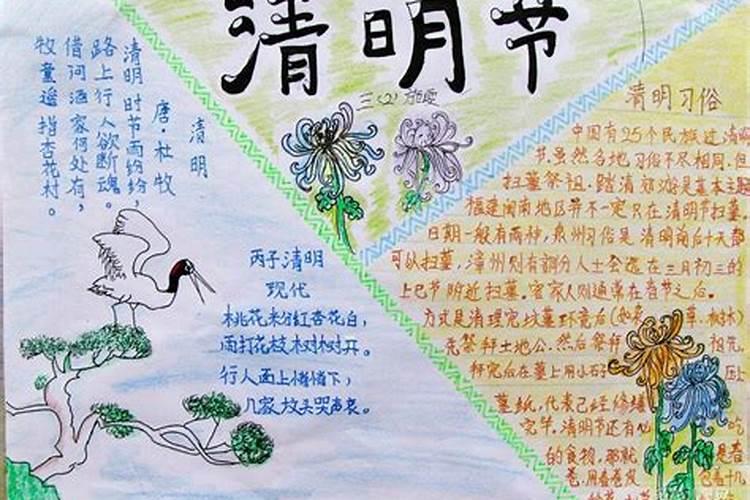 清明节
三(2)
清明
唐·杜牧
清明时节雨纷纷，
路上行人欲断魂。
借问酒家何处有，
牧童遥指杏花村。
丙子清明
现代
桃花粉红杏花白，
雨打花枝树树开。
行人面上惜惜下，
几家坟头哭声哀。
清明习俗
中国有25个民族过清明
节，虽然各地习俗不尽相同，但
扫墓祭祖、踏清郊游是基本主题
福建闽南地区并不一定只在清明节扫墓，
日期一般有两种，泉州习俗是清明前后十天都
可以扫墓，漳州则有部分人士会选在三月初三的
上巳节附近扫墓。客家人则通常在春节之后。
方式是清理完坟墓环境后(如杂草、树木)
先祭拜土地公，然后祭拜祖先，
拜完后在墓上用小石压上
墓纸，代表已经修缮
完毕。清明节还有吃的
的食物，那就是春
卷，用春卷皮包着十几